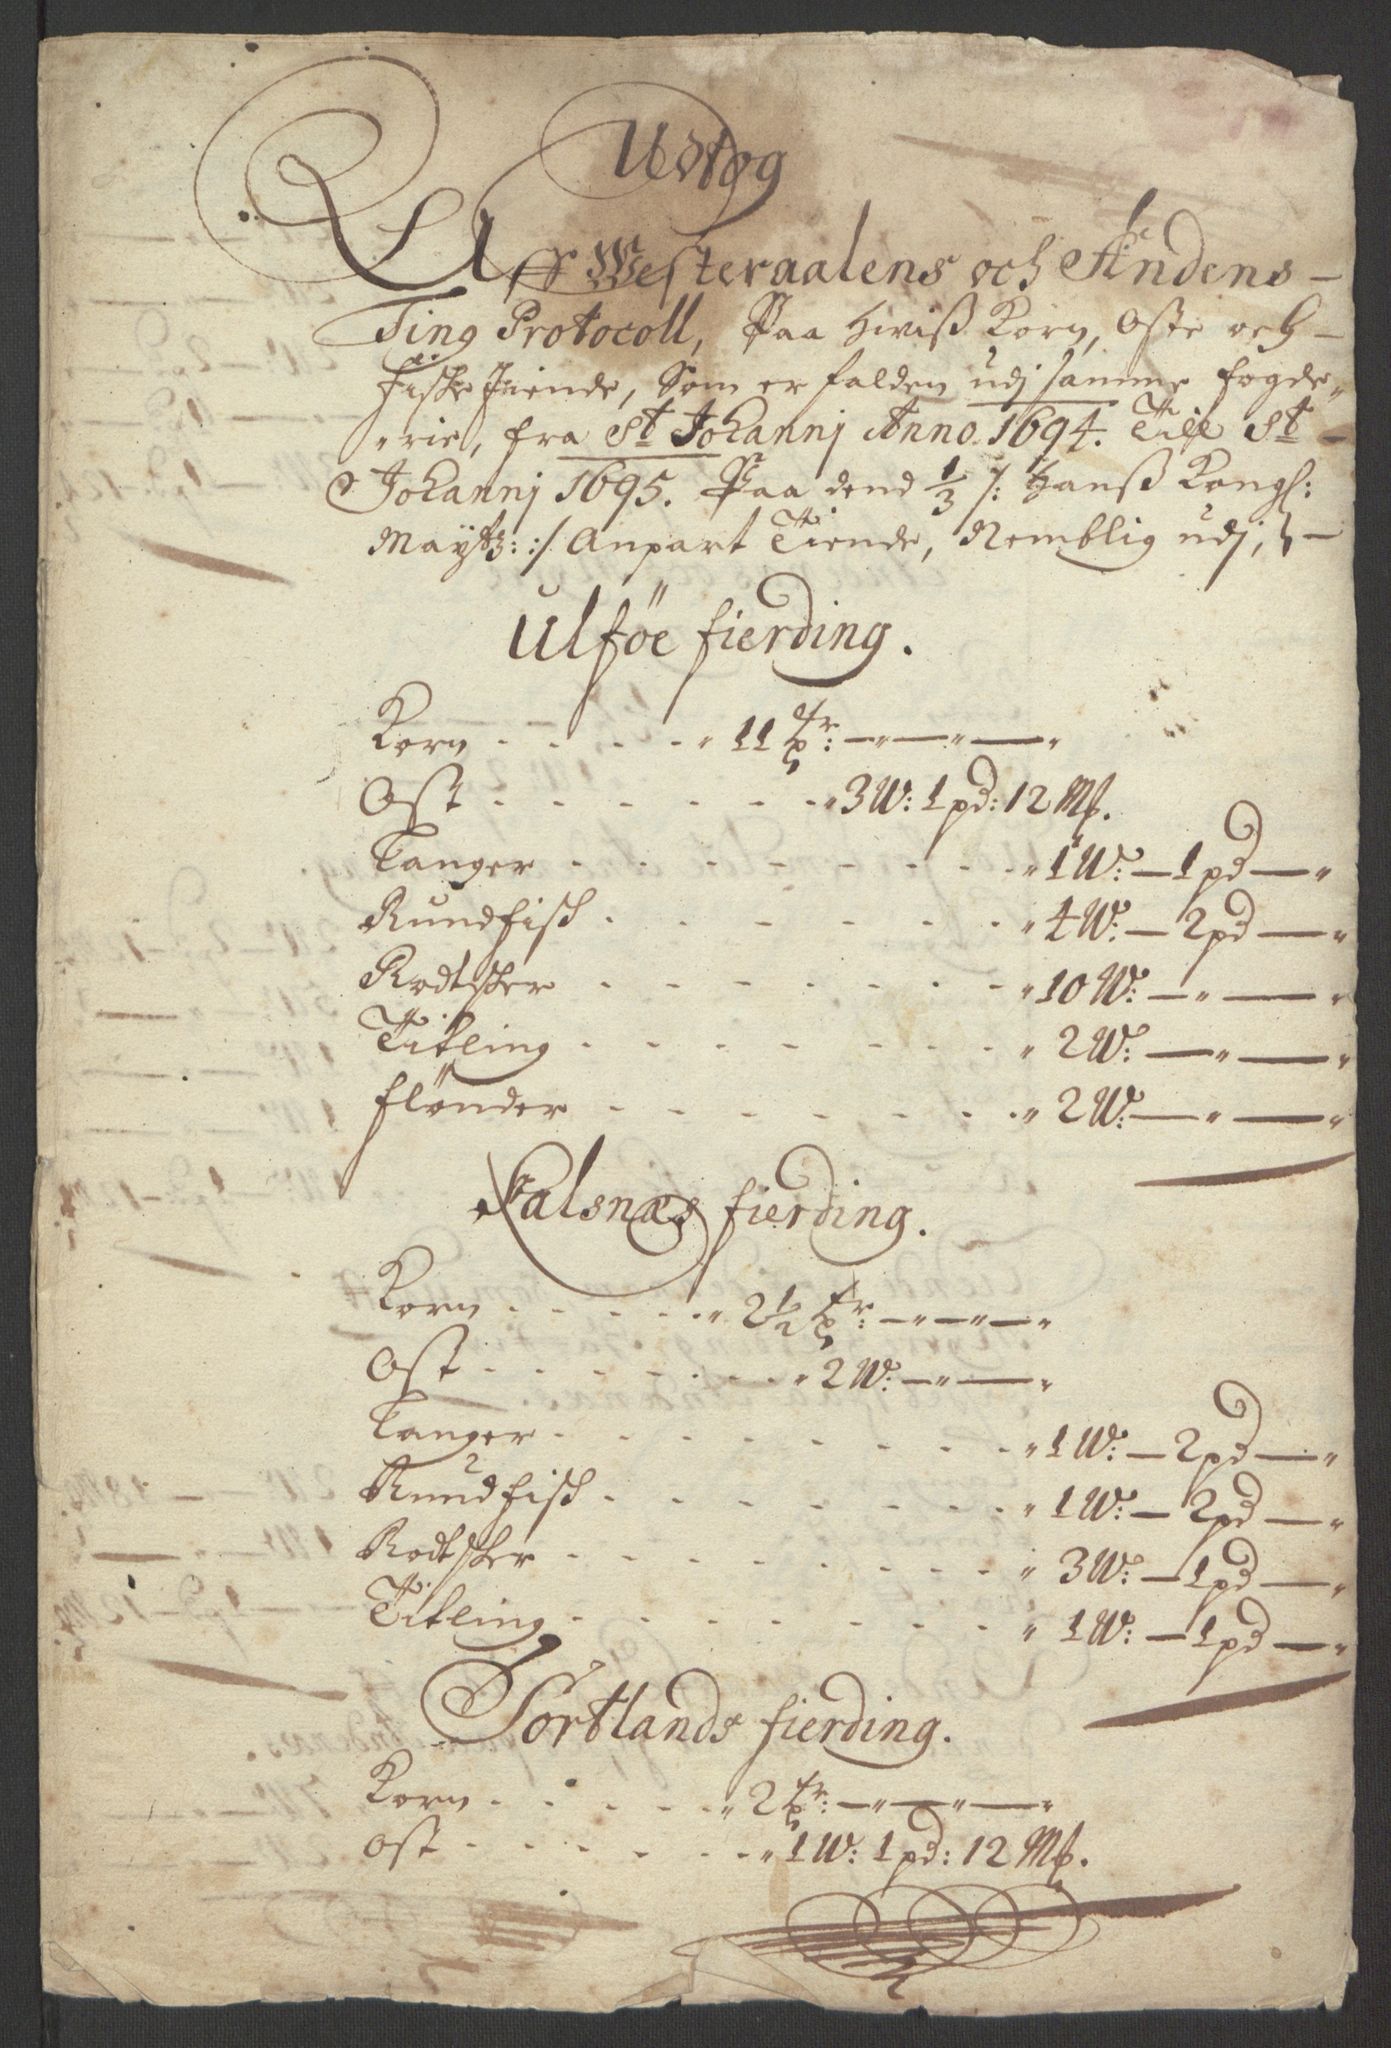 Udtog
Aff Westeraalens och Andens
Ting Protocoll, Paa Hwiß Korn, Oste och
Fiske Tiende, Som er falden udj samme fogde„
„rie, fra St Johannj Anno 1694. Till St
Johannj 1695. Paa dend 1/3 /: Hanß Kongl:
Maytz: :/ Anpart Tiende, Nemblig udj,
Ulföe fierding.
Korn . . . . . „ 11 tr: — „ — „ — „
Ost . . . . . . „ 3 W: 1 pd: 12 Mk.
Langer . . . . . . . „ 1 W: — 1 pd — „
Rundfisch . . . . . . „ 4 W: — 2 pd — „
Rodtsker . . . . . . . „ 10 W: — „ — „
Titling . . . . . . . „ 2 W: — „ — „
flönder . . . . . . . „ 2 W: — „ — „
Falsnæs fierding.
Korn . . . . . „ 2 1/2 tr: — „ — „ — „
Ost . . . . . . „ 2 W: — „ — „
Langer . . . . . . . „ 1 W: — 2 pd — „
Rundfisch . . . . . . „ 1 W: — 2 pd — „
Rodtsker . . . . . . . „ 3 W: — 1 pd — „
Titling . . . . . . . „ 1 W: — 1 pd — „
Sortlands fierding.
Korn . . . . . „ 2 tr: — „ — „ — „
Ost . . . . . . „ 1 W: 1 pd: 12 Mk.